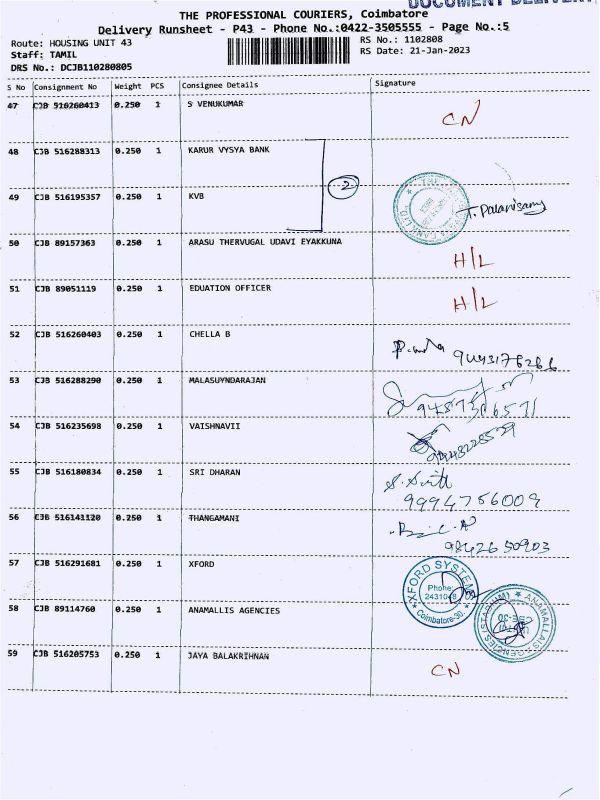 DOCUMENT DELIVERY
THE PROFESSIONAL COURIERS, Coimbatore
Delivery Runsheet - P43 - Phone No.:0422-3505555 - Page No.:5
Route: HOUSING UNIT 43
RS No.: 1102808
Staff: TAMIL
RS Date: 21-Jan-2023
DRS No.: DCJB110280805
S No Consignment No Weight PCS Consignee Details Signature
47 CJB 516260413 0.250 1 S VENUKUMAR CN
48 CJB 516288313 0.250 1 KARUR VYSYA BANK
2
49 CJB 516195357 0.250 1 KVB T. Palanisamy
50 CJB 89157363 0.250 1 ARASU THERVUGAL UDAVI EYAKKUNA H/L
51 CJB 89051119 0.250 1 EDUATION OFFICER H/L
52 CJB 516260403 0.250 1 CHELLA B
53 CJB 516288290 0.250 1 MALASUYNDARAJAN
54 CJB 516235698 0.250 1 VAISHNAVII
55 CJB 516180834 0.250 1 SRI DHARAN
9994756009
56 CJB 516141120 0.250 1 THANGAMANI
9842650903
57 CJB 516291681 0.250 1 XFORD
XFORD SYSTEM
Phone:
Coimbatore-30.
58 CJB 89114760 0.250 1 ANAMALLIS AGENCIES
59 CJB 516205753 0.250 1 JAYA BALAKRIHNAN CN